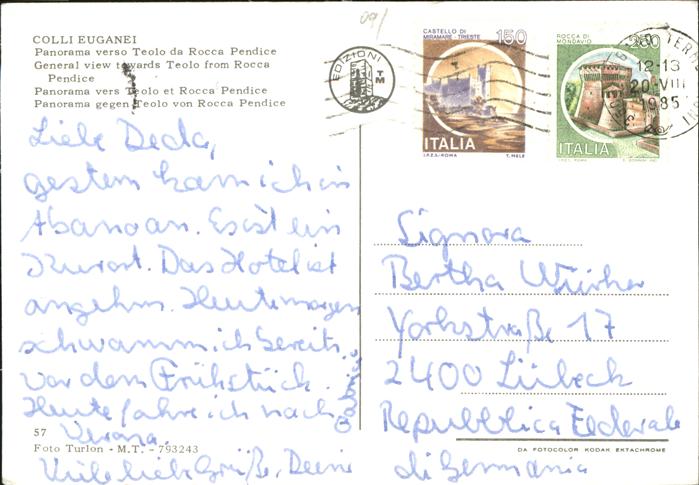 COLLI EUGANEI
Panorama verso Teolo da Rocca Pendice
General view towards Teolo from Rocca
Pendice
Panorama vers Teolo et Rocca Pendice
Panorama gegen Teolo von Rocca Pendice
EDIZIONI
TM
CASTELLO DI
MIRAMARE - TRIESTE
150
ITALIA
I.P.Z.S.-ROMA
T. MELE
ROCCA DI
MONDAVIO
200
ITALIA
12-13
20-VIII
1985
Liebe Deda,
gestern kam ich in
Abano an. Es ist ein
Kurort. Das Hotel ist
angehm. Heute morgen
schwamm ich bereits
vor dem Frühstück.
Heute fahre ich nach
Verona.
Viele liebe Grüße, Deine
Signora
Bertha
Yorkstraße 17
2400 Lübeck
Repubblica Federale
di Germania
57
Foto Turlon - M.T. - 793243
DA FOTOCOLOR KODAK EKTACHROME